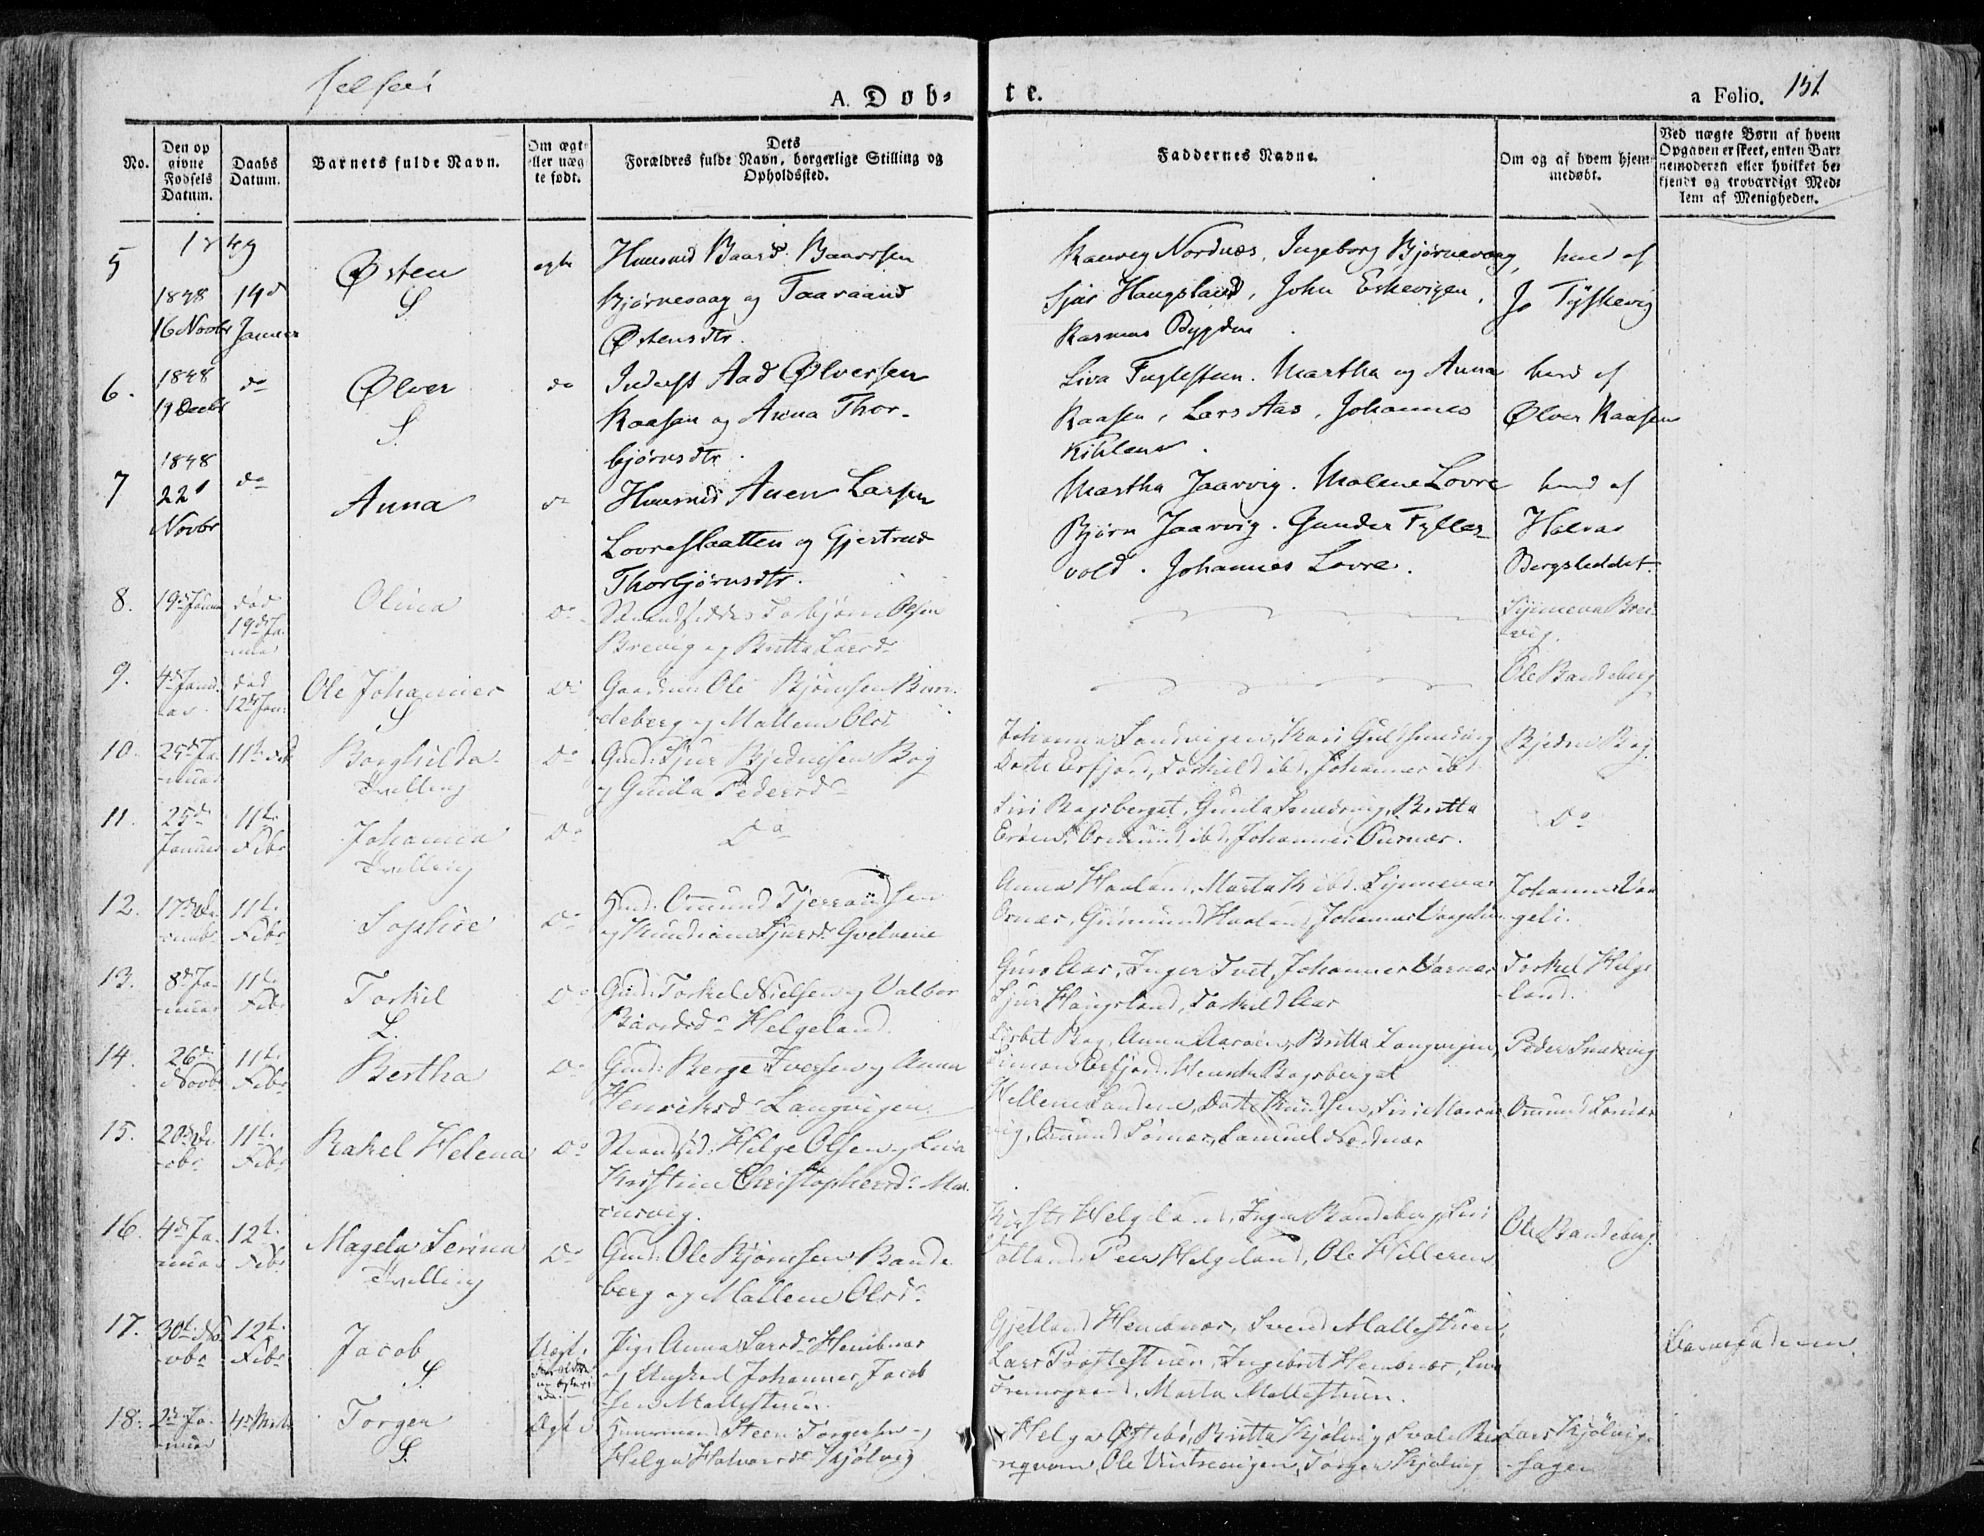 A. Døb-
te.
a Folio. 151
No.
Den op
givne
Fødsels
Datum.
Daabs
Datum.
Barnets fulde Navn.
Om ægt-
eller uæg
te født.
Dets
Forældres fulde Navn, borgerlige Stilling og
Opholdssted.
Faddernes Navne.
Om og af hvem hjem-
medøbt.
Ved uægte Børn af hvem
Opgaven er skeet, enten Bar-
nemoderen eller hvilket be-
kjendt og troværdigt Med-
lem af Menigheden.
1849
5
1848
16 Novbr
14d
Januar
Østen
S.
egte
Huusmd Baard Baardsen
Bjørnevaag og Taaraand
Østensdtr.
Ranveg Nordnæs, Ingeborg Bjørnevaag,
Sjur Haugsland, John Eskevigen,
Rasmus Bygden
hmd af
Jo Tyskevig
6.
1848
19 Decbr
do
Ølver
S.
do
Inderst Aad Ølversen
Kaasen og Anna Thor-
bjørnsdtr.
Siva Fuglestein. Martha og Anna
Kaasen, Lars Aas, Johannes
hmd af
Ølver Kaasen
7
1848
22d
Novbr
do
Anna
do
Huusmd Anen Larsen
Lovreslaatten og Gjertrud
Thorbjørnsdtr.
Martha Jaarvig. Malene Lovre
Bjørn Jaarvig. Gunder Tylles-
vold. Johannes Lovre.
hmd af
Halvor
Bergsleddet
8.
19d Januar
død
19d Ja-
nuar
Olina
Do
Strandsidder Torbjørn Olsen
Brevig og Britta Larsd
Synneva Bre-
vig.
9.
4d Janu-
ar
død
12d Jan:
Ole Johannes
S
Do
Gaardm: Ole Bjørnsen Ban-
deberg og Mallene Olsd
Ole Bandeberg
10.
25d Ja-
nuar
11te Feb
Borghilda
Tvilling
Do
Gmd: Sjur Bjednesen Bog
og Gunla Pedersd
Johanna Landvigen, Kari Gulsmedvig
Dorte Erfjord, Torkild ibd, Johannes ibd
Bjedne Bog
11.
25d
Januar
11te
Febr
Johanna
Tvilling
Do
Do
Siri Bogsberget, Gunla Smedvig, Britta
Erøen, Osmund ibd, Johannes Ournæs.
Do
12.
17d De-
cembr
11te
Febr
Sophie
Do
Gmd: Omund Tjerrandsen
Anna Haaland, Marta K ibd, Synneva
Ornæs, Gunmund Haaland, Johannes Vaageli
Johannes Vaa-
geli.
13.
8d Ja-
nuar
11te
Febr
Torkil
S.
Do
Gmd: Torkel Nielsen og Valbor
Baardsd Helgeland.
Guro Aas, Inger Tvet, Johannes
Sjur Haugsland, Torkild Aas
Torkel Helge-
land.
14.
26d
Novbr
11te
Febr
Bertha
Do
Gmd: Berge Iversen og Anna
Henriksd Langvigen.
Lisbet Bog, Anna Aarøen, Britta Langvigen,
Simon Erfjord, Henrik Bogsberget
Peder Smedvig
15.
20d De-
cbr
11te
Febr
Rakel Helena
Do
Strandsid: Helge Olsen og Siva
Kristine Christophersd Mar-
cusvig.
Hellene Sanden, Dorte Knudsen, Siri Marcus-
vig, Omund Sørnæs, Samuel Nordnæs
Omund Sørnæs
16.
4d Ja-
nuar
12te
Febr
Magela Serina
Tvilling
Do
Gmd: Ole Bjørnsen Bande-
berg og Mallene Olsd
Helgeland, Inger Bandeberg, Siri
Peer Helgeland, Ole Hilleren
Ole Bandeberg.
17.
30te No-
vbr
12te
Febr
Jacob
S.
Uægt:
Pige Anna Larsd Hembnæs
og Ungkarl Johannes Jacob-
sen Mallestuen.
Gjetland Hembnæs, Svend Mallestuen,
Lars Prostestuen, Ingebret Hembnæs,
Marta Mallestuen.
Barnefaderen.
18.
2d Ja-
nuar
4d Marts
Torger
S.
Ægte
Huusmand Steen Torgersen og
Helga Halvorsd Kjølvig
Helga Østebø, Britta Kjølvig,
Ole Vestrevigen, Torger Kjølvig
Lars Kjølvig-